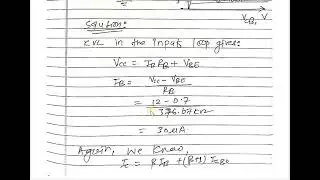 VB, V
Solution:
KVL in the input loop gives:
Vcc = IBRB + VBE
IB = Vcc - VBE
RB
= 12 - 0.7
376.67kΩ
= 30μA
Again, we know,
Ic = βIB + (β+1) ICBO